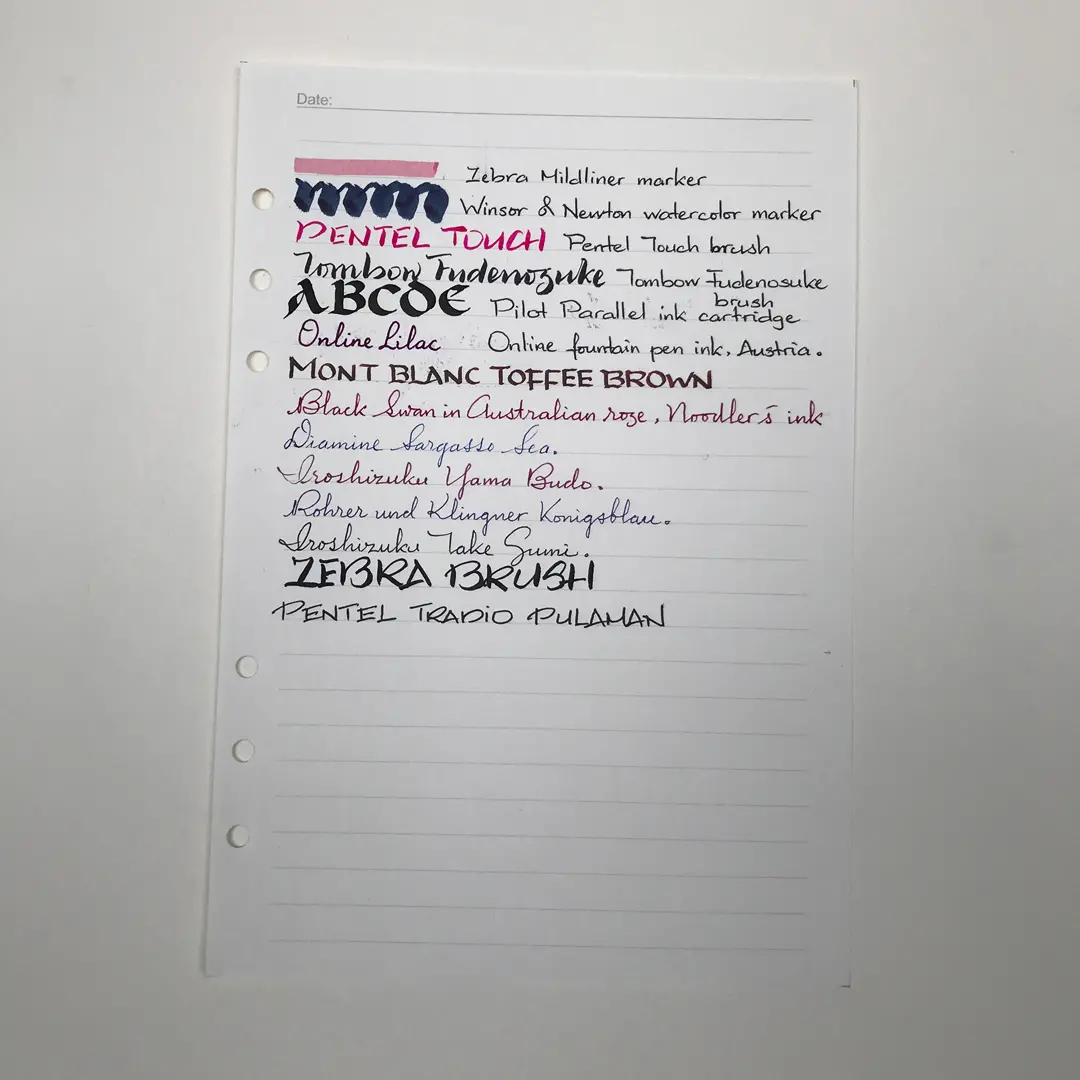 Date:
Zebra Mildliner marker
Winsor & Newton watercolor marker
PENTEL TOUCH Pentel Touch brush
Tombow Fudenozuke Tombow Fudenosuke
brush
ABCDE Pilot Parallel ink cartridge
Online Lilac Online fountain pen ink, Austria.
MONT BLANC TOFFEE BROWN
Black Swan in Australian roze, Noodler's ink
Diamine Sargasso Sea.
Iroshizuku Yama Budo.
Rohrer und Klingner Konigsblau.
Iroshizuku Take Sumi.
ZEBRA BRUSH
PENTEL TRADIO PULAMAN